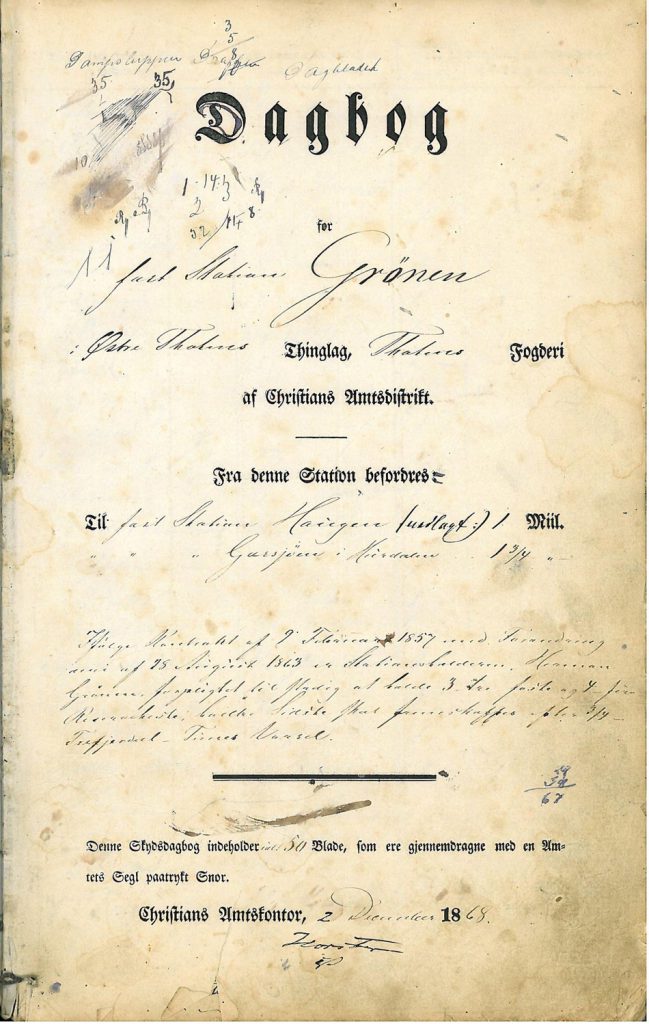 3
5
8
Dampskipper Dagbladet
35 35
Dagbog
10
1 14 3
2
32 /14 8
11
for
fast Station Grönen
i Østre Thotens Thinglag, Thotens Fogderi
af Christians Amtsdistrikt.
Fra denne Station befordres:
Til fast Station Haugen (nedlagt:) 1 Miil.
" " " Garsjøen i Hurdalen 1 3/4 "
Ifølge Kontrakt af 9 Februar 1857 med Forandring
ani af 28 August 1863 er Stationsholderen, Herman
Grönen, forpligtet til stadig at holde 3 - tre faste og 4 - fire
Reserveheste; hvilke sidste skal fremskaffes efter 3/4 -
Trefjerdedel - Times Varsel.
29
38
67
Denne Skydsdagbog indeholder 50 Blade, som ere gjennemdragne med en Am-
tets Segl paatrykt Snor.
Christians Amtskontor, 2 December 1868.